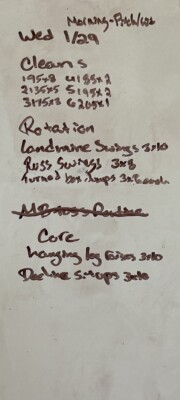 Morning-
Wed 1/29
Cleans
195x8 4185x2
2135x5 5195x2
3175x3 6205x1
Rotation
Landmine Swings 3x10
Russ Swings 3x8
Turned box Jumps 3x each
MB toss Routine
Core
hanging leg Raises 3x10
Decline Situps 3x10